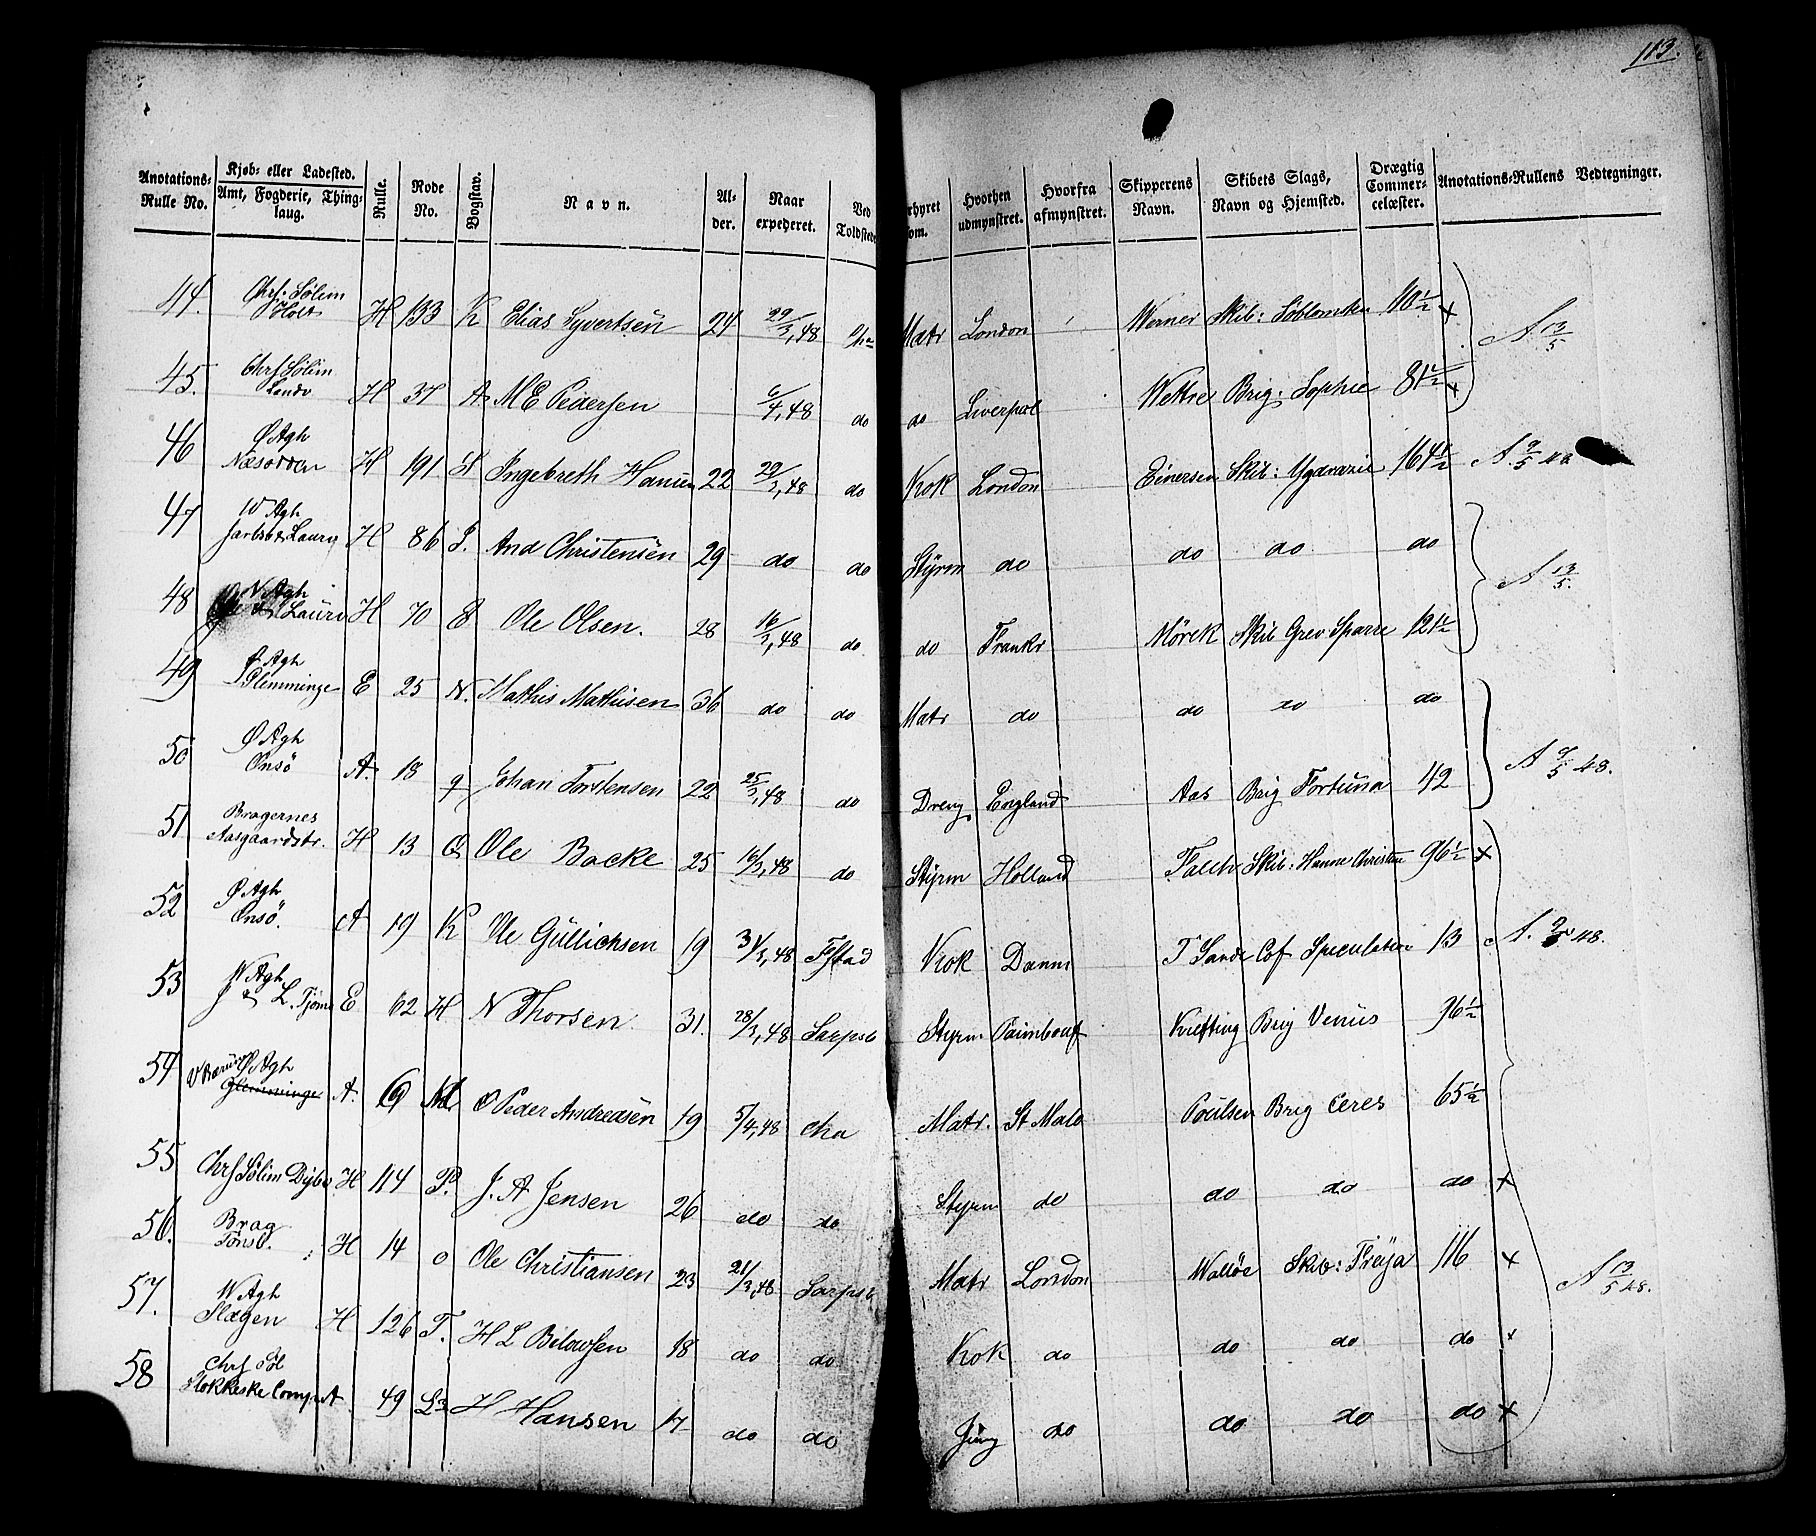 113.
Anotations-Rulle No. | Kjøb- eller Ladested. Amt, Fogderie, Thinglaug. | Rulle. | Rode No. | Bogstav. | Navn. | Alder. | Naar expederet. | Ved Toldsted | rhyret om. | Hvorhen udmynstret. | Hvorfra afmynstret. | Skipperens Navn. | Skibets Slags, Navn og Hjemsted. | Drægtig Commercelæster. | Anotations-Rullens Vedtegninger.
44. Chrf: Sølim Holt H 133 K Elias Syvertsen 24 29/3,48 Matr London Werner Skib: 110 1/2 x A 13/5
45. Chrf Sølim H 37 A M E Pedersen 6/4,48 do do Liverpool Wettre Brig: Sophie 81 1/2 x
46 Ø Agh Næsodden H 191 Ingebreth Hansen 22 29/3,48 do Kok London Einersen Skib: Ygdrasil 164 1/2 A 9/5 48
47 W Agh Jarlsb & Laurv H 86 And Christensen 29 do do Styrm do do do do
48 W Agh & Laurv H 70 Ole Olsen. 28 16/3,48 do do Frankr Mörck Skib Grev Sparre 121 1/2 A 13/5.
49 Ø Agh Glemminge E 25 N. Mathis Mathisen 36 do do Matr do do do do
50 Ø Agh Onsö A. 18 g Johan Torstensen 22 25/3,48 do Dreng England Aas Brig Fortuna 42 A 9/5 48.
51 Bragernes Aasgaardstr. H 13 Ole Backe 25 16/3,48 do Styrm Holland Falch Skib: Hanne Christine 96 1/2 x
52 Ø Agh Onsö. A 19 K Ole Gullichsen 19 31/3,48 Fstad Kok Danm T Sande Cof Speculation 13 A. 48.
53 W Agh J & L. Tjömö E 62 H N Thorsen 31. 28/3,48 Sarpsb Styrm. Paimbouf Krefting Brig Venus 96 1/2
54 Ø Agh Glemminge A. O Peder Andreasen 19 5/4,48 Cha Matr. St Malo Poulsen Brig Ceres 65 1/2
55 Chrf Sølim Dybv. H 114 P. J. A Jensen 26 do do Styrm do do do do x
56. Brag Tönsb. H 14 o Ole Christiansen 23 21/3,48 Sarpsb Matr London Walløe Skib: Fröja 116 x
57. W Agh Slagen H 126 T. H L 18 do do Kok do do do do x A 13/5 48.
58 Chrf Söl Stokkeske Comp. A 49 L3 H Hansen 17 do do Jung do do do do x